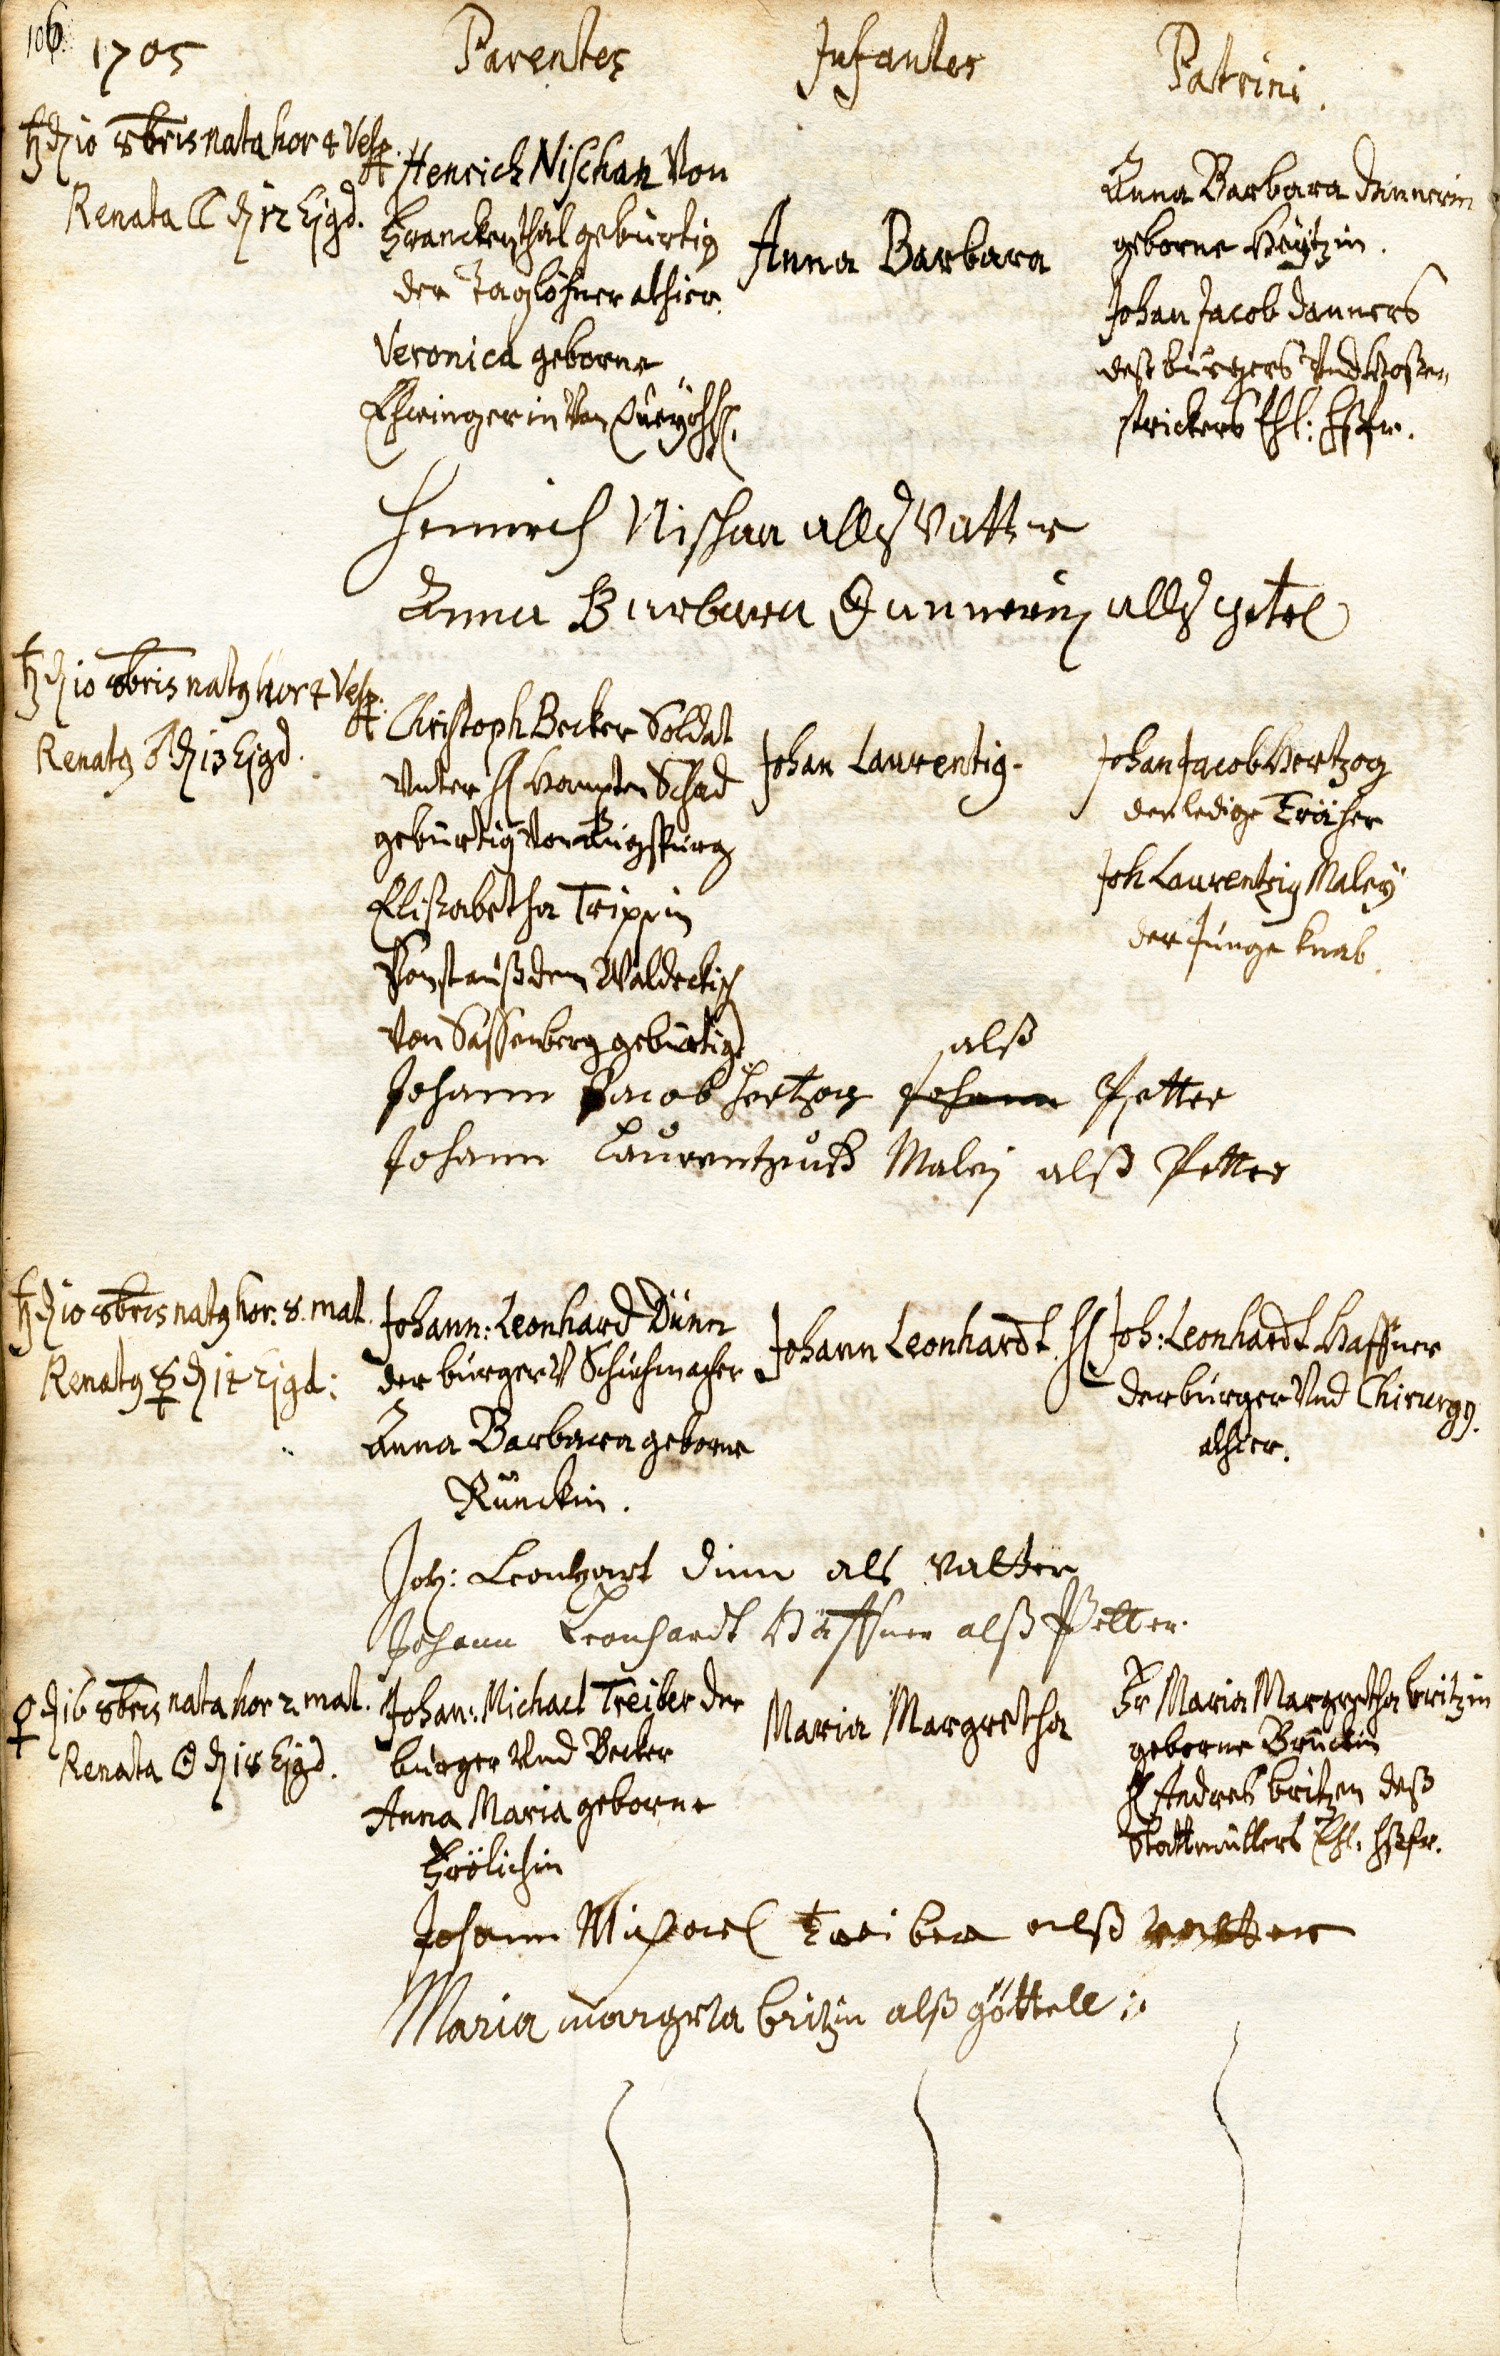 106.
1705
Parentes
Infantes
Patrini.
♄ d 10 8bris nata hor 4 Vesp.
Renata ☾ d 12 Ejgd.
Henrich Nischan Von
Franckenthal gebürtig
der Taglöhner alhier.
Veronica geborne
Von
Anna Barbara
Anna Barbara Dannerin
geborne
Johan Jacob Danners
deß burgers Und Hoßen
strickers Ehl: Hßfr.
Henrich Nischan alls Vatter
Anna Barbara Dannerin alls getel
♄ d 10 8bris natq hor 4 Vesp.
Renatq ♂ d 13 Ejgd.
Christoph Becker Soldat
Unter H Haupten Schad
gebürtig Von Augspurg
Elisabetha Trippin
Sonst auß dem Waldeckis
Von Sassenberg gebürtig
Johan Laurentiq.
Johan Jacob Hertzog
der ledige
Joh Laurentziq Maley
der Junge knab.
alß
Johann Jacob Hertzog Johann Petter
Johann Laurentzuß Maley alß Petter
♄ d 10 8bris natq hor. 8. mat.
Renatq ☿ d 14 Ejgd:
Johann: Leonhard Dünn
der burger V Schuhmacher
Anna Barbara geborne
Rünckin.
Johann Leonhardt.
H Joh: Leonhardt Haffner
der burger Und Chirurgq.
alhier.
Joh: Leonhart Dinn als Vatter
Johann Leonhardt Haffner alß Petter.
♀ d 16 8bris nata hor 2 mat.
Renata ☉ d 18 Ejgd.
Johan: Michael Treiber der
burger Und Becker
Anna Maria geborne
Frölichin
Maria Margretha
Fr Maria Margretha britzin
geborne Brückin
H Andreas britzen deß
Stattmüllers Ehl. Hßfr.
Johann Michael treiber alß vatter
Maria margrta britzin alß göttell